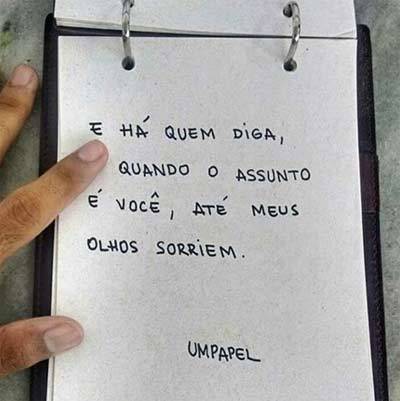 E HÁ QUEM DIGA,
QUANDO O ASSUNTO
É VOCÊ, ATÉ MEUS
OLHOS SORRIEM.
UMPAPEL